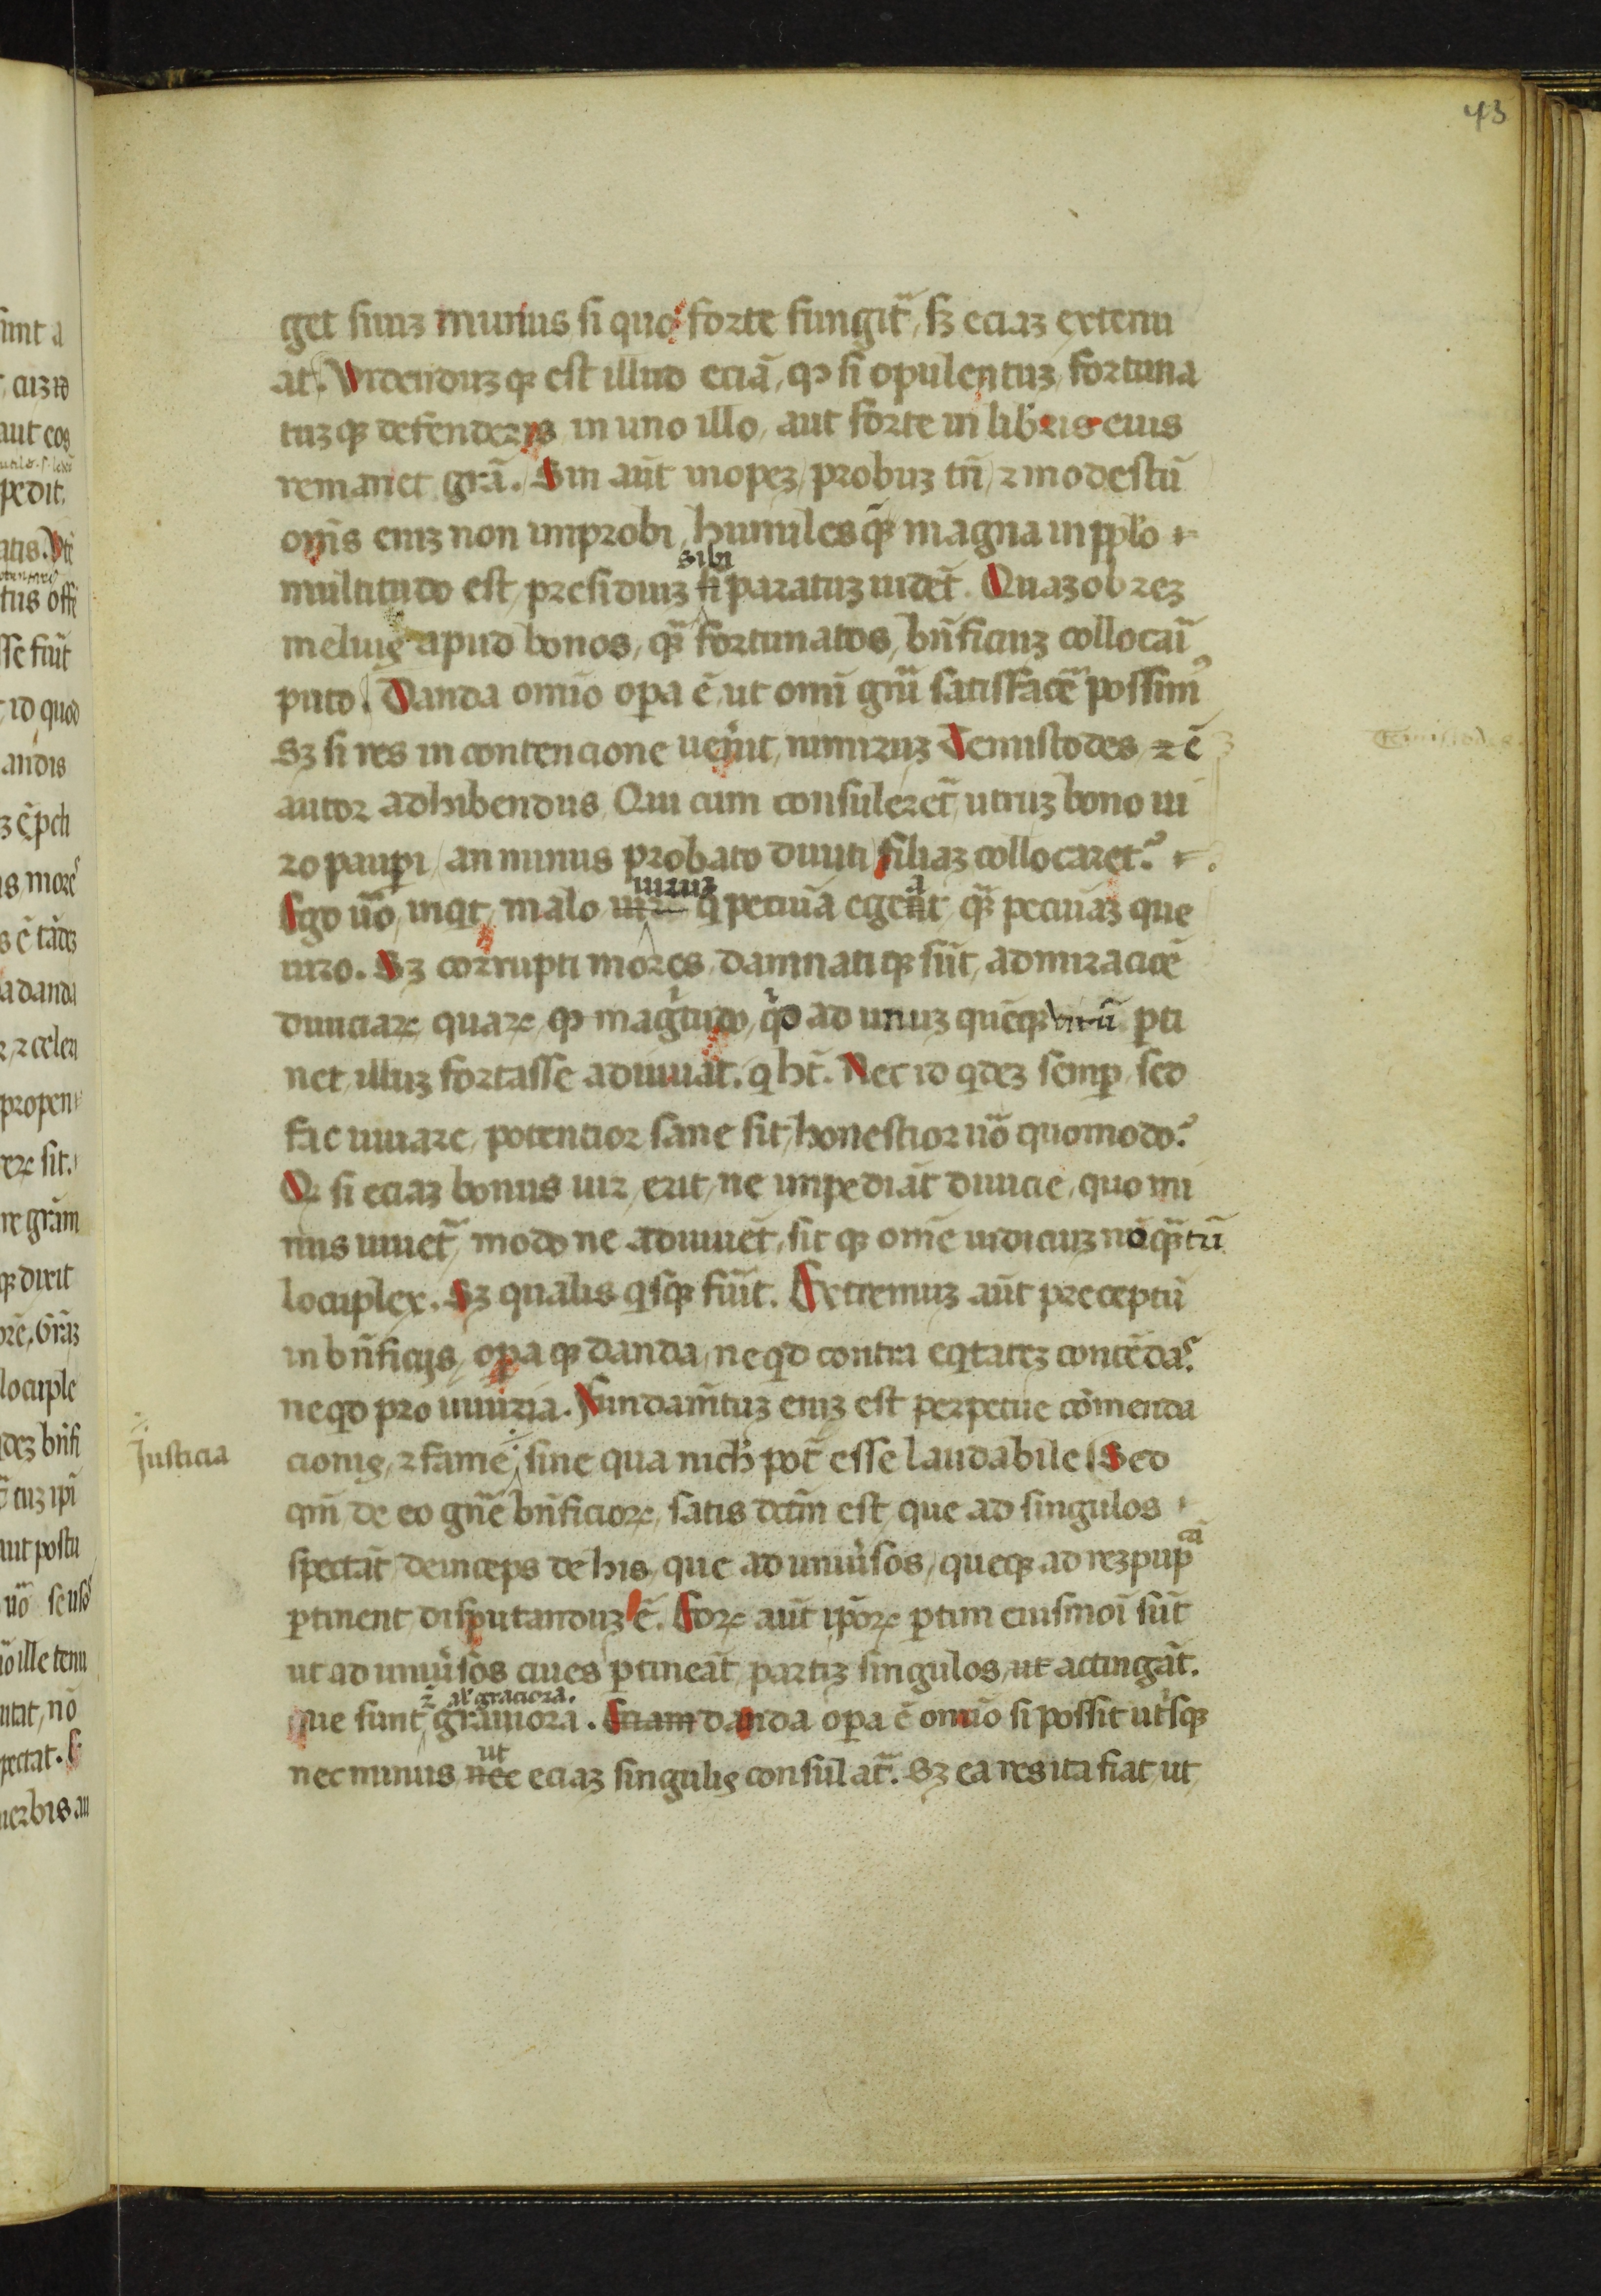 43
get suuʒ munus si quo forte fungit᷑, sʒ eciaʒ extenu
at. Videnduʒqʒ est illud eciā, qꝫ si opulentuʒ, fortuna
tuʒqʒ defenderis in uno illo, aut forte in liberis eius
remanet grā. Sin aūt inopeʒ, probuʒ tn̄, ⁊ modestū
om̄s eniʒ non improbi, humiles qʒ magna in ppl'o
sibi
multitudo est, presidiuʒ si paratuʒ uidet᷑. Quaʒobreʒ
melius apud bonos, qʒ fortunatos, bn̄ficiuʒ collocari
puto. Danda omīo opa ē, ut omī gn̄i satisfacē possim⁹
Sʒ si res in contencione uen̄it, nimiruʒ Temistocles ⁊ ē
autor adhibendus. Qui cum consuleret᷑, utruʒ bono ui
ro paupi, an minus probato diuiti filiaʒ collocaret?
uiruʒ a
Ego uo̊, inqt, malo uiru q̄ pecūa egent, qʒ pecūaʒ que
uiro. Sʒ corrupti mores, damnatiqʒ sūt, admiracioē
diuiciaꝝ quaꝝ, qꝫ magītudo, qd̓ ad unuʒ quēqʒ uirū pti
net, illuʒ fortasse adiuuat. q ht̄. Nec id qdeʒ semp, sed
fac iuuare, potencior sane sit, honestior uo̊ quomodo?
Qꝫ si eciaʒ bonus uir, erit, ne impediāt diuicie, quo mi
nus iuuet᷑, modo ne adiuuet᷑, sit qʒ om̄e iudiciuʒ nō qʒtū
locuplex. Sʒ qualis qsqʒ fuīt. Extremuʒ aūt preceptū
in bn̄ficijs, opaqʒ danda, neqd contra eqtateʒ contēdas
neqd pro iniuria. Fundam̄tuʒ eniʒ est perpetue cōmenda
Justicia
cionis, ⁊ fame, sine qua nich' pot̄ esse laudabile. Sed
qm̄ de eo gn̄e bn̄ficioꝝ, satis dcm̄ est, que ad singulos
spectāt, deinceps de his, que ad uniūsos, queqʒ ad reʒpup
cā
ptinent, disputanduʒ ē. Eoꝝ aūt ipoꝝ ptim eiusmoi sūt
ut ad uniūsos ciues ptineāt, partiʒ singulos, ut attingāt.
⁊ al' graciora.
que sunt grauiora. Etiam danda opa ē omīo si possit utrisqʒ
ut
nec minus, nec eciaʒ singulis consulat᷑. Sʒ ea res ita fiat, ut